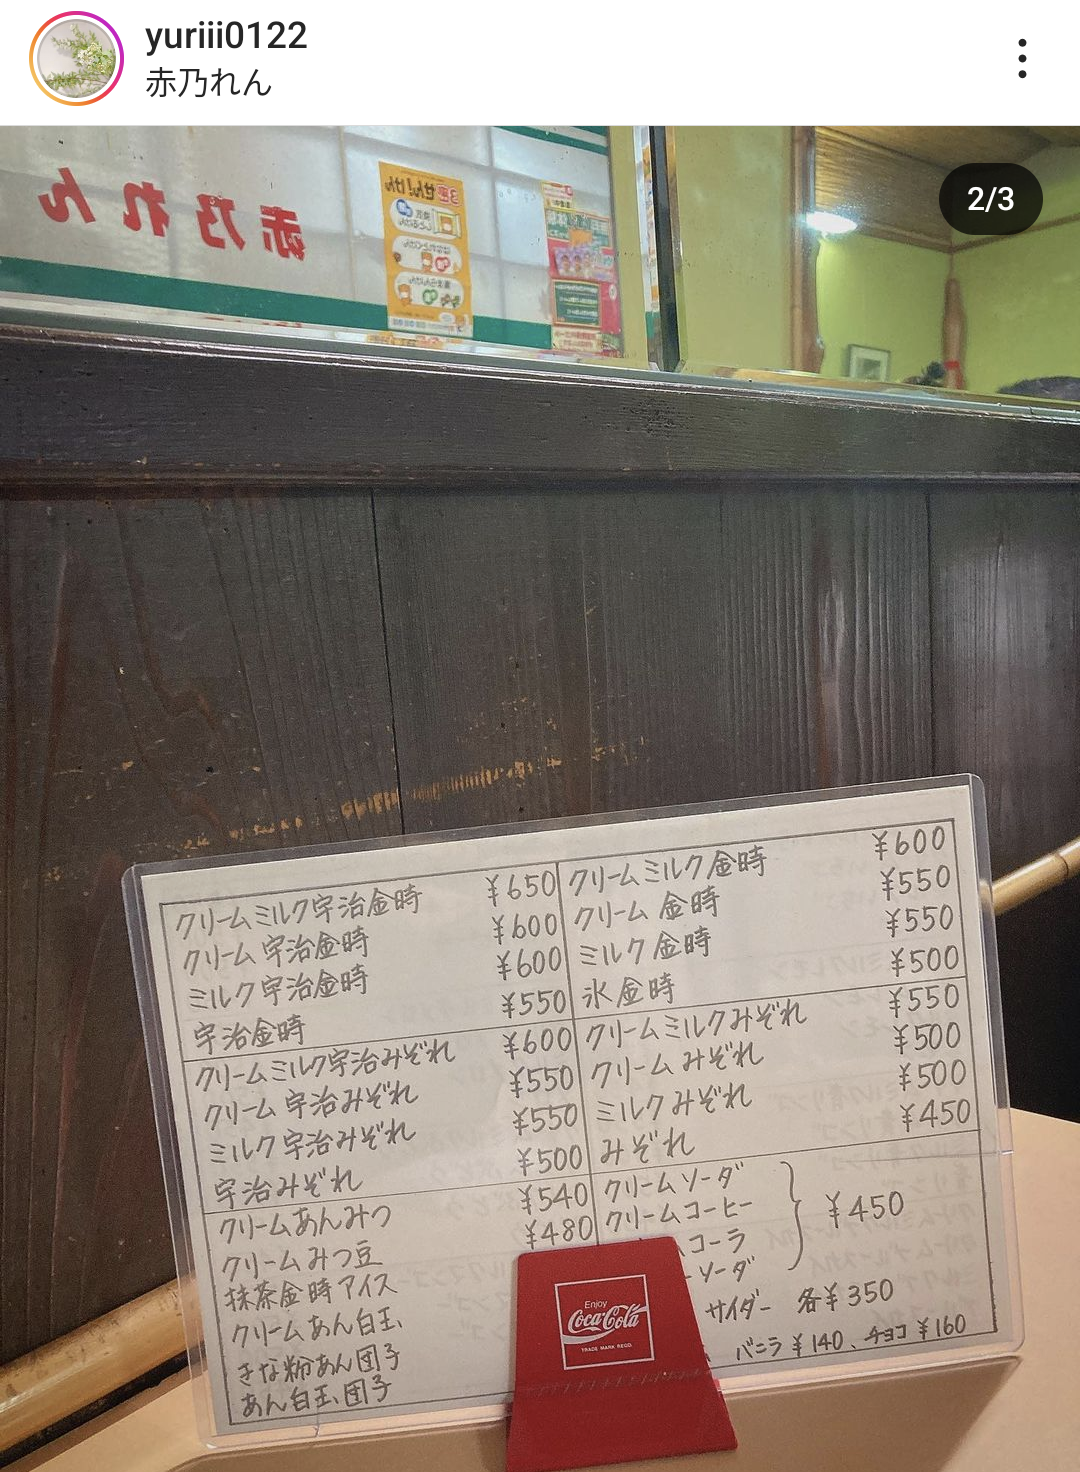 yuriii0122
赤乃れん
2/3
赤乃れん
クリームミルク宇治金時 ¥650
クリーム宇治金時 ¥600
ミルク宇治金時 ¥600
宇治金時 ¥550
クリームミルク宇治みぞれ ¥600
クリーム宇治みぞれ ¥550
ミルク宇治みぞれ ¥550
宇治みぞれ ¥500
クリームあんみつ ¥540
クリームみつ豆 ¥480
抹茶金時アイス
クリームあん白玉
きな粉あん団子
あん白玉団子
クリームミルク金時 ¥600
クリーム金時 ¥550
ミルク金時 ¥550
氷金時 ¥500
クリームミルクみぞれ ¥550
クリームみぞれ ¥500
ミルクみぞれ ¥500
みぞれ ¥450
クリームソーダ
クリームコーヒー
コーラ
ソーダ
¥450
サイダー 各¥350
バニラ¥140、チョコ¥160
Enjoy
Coca-Cola
TRADE MARK REGD.